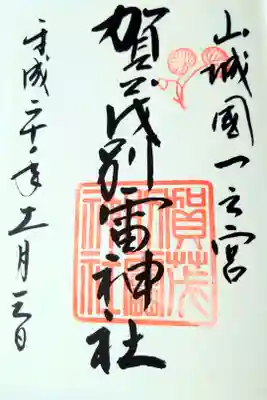 山城國一之宮
賀茂別雷神社
平成二十年十一月三日
賀茂別雷神社